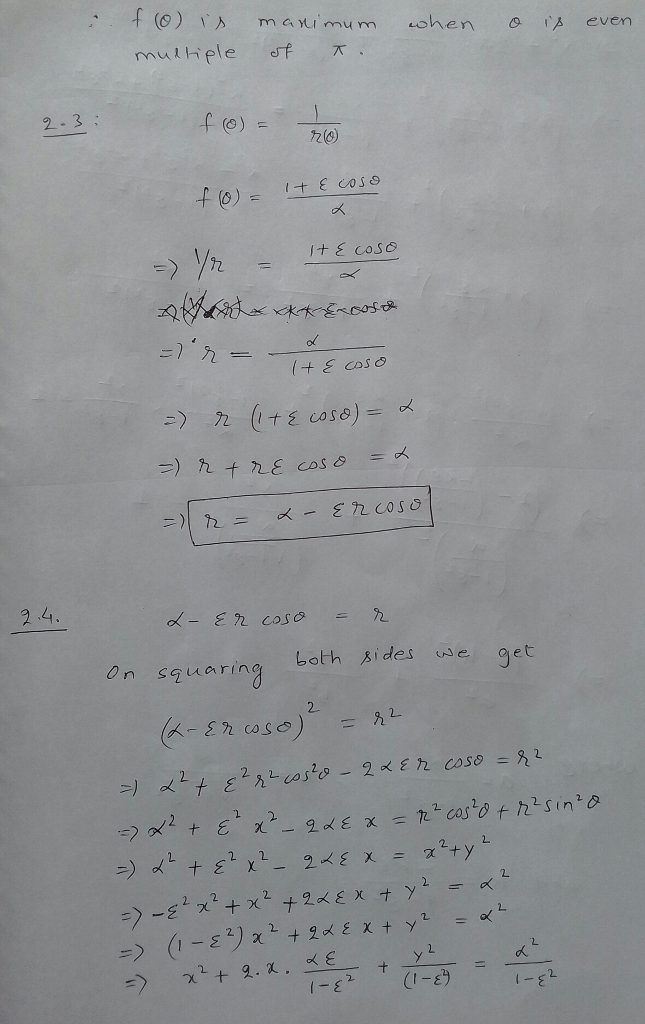 ∴ f(θ) is maximum when θ is even
multiple of π.
2.3: f(θ) = 1/r(θ)
f(θ) = (1+ε cosθ)/α
=> 1/r = (1+ε cosθ)/α
=> r = α/(1+ε cosθ)
=> r (1+ε cosθ) = α
=> r + rε cosθ = α
=> r = α - εr cosθ
2.4. α - εr cosθ = r
On squaring both sides we get
(α-εr cosθ)² = r²
=> α² + ε²r²cos²θ - 2αεr cosθ = r²
=> α² + ε²x² - 2αεx = r²cos²θ + r²sin²θ
=> α² + ε²x² - 2αεx = x²+y²
=> -ε²x² + x² + 2αεx + y² = α²
=> (1-ε²)x² + 2αεx + y² = α²
=> x² + 2.x. αε/(1-ε²) + y²/(1-ε²) = α²/(1-ε²)